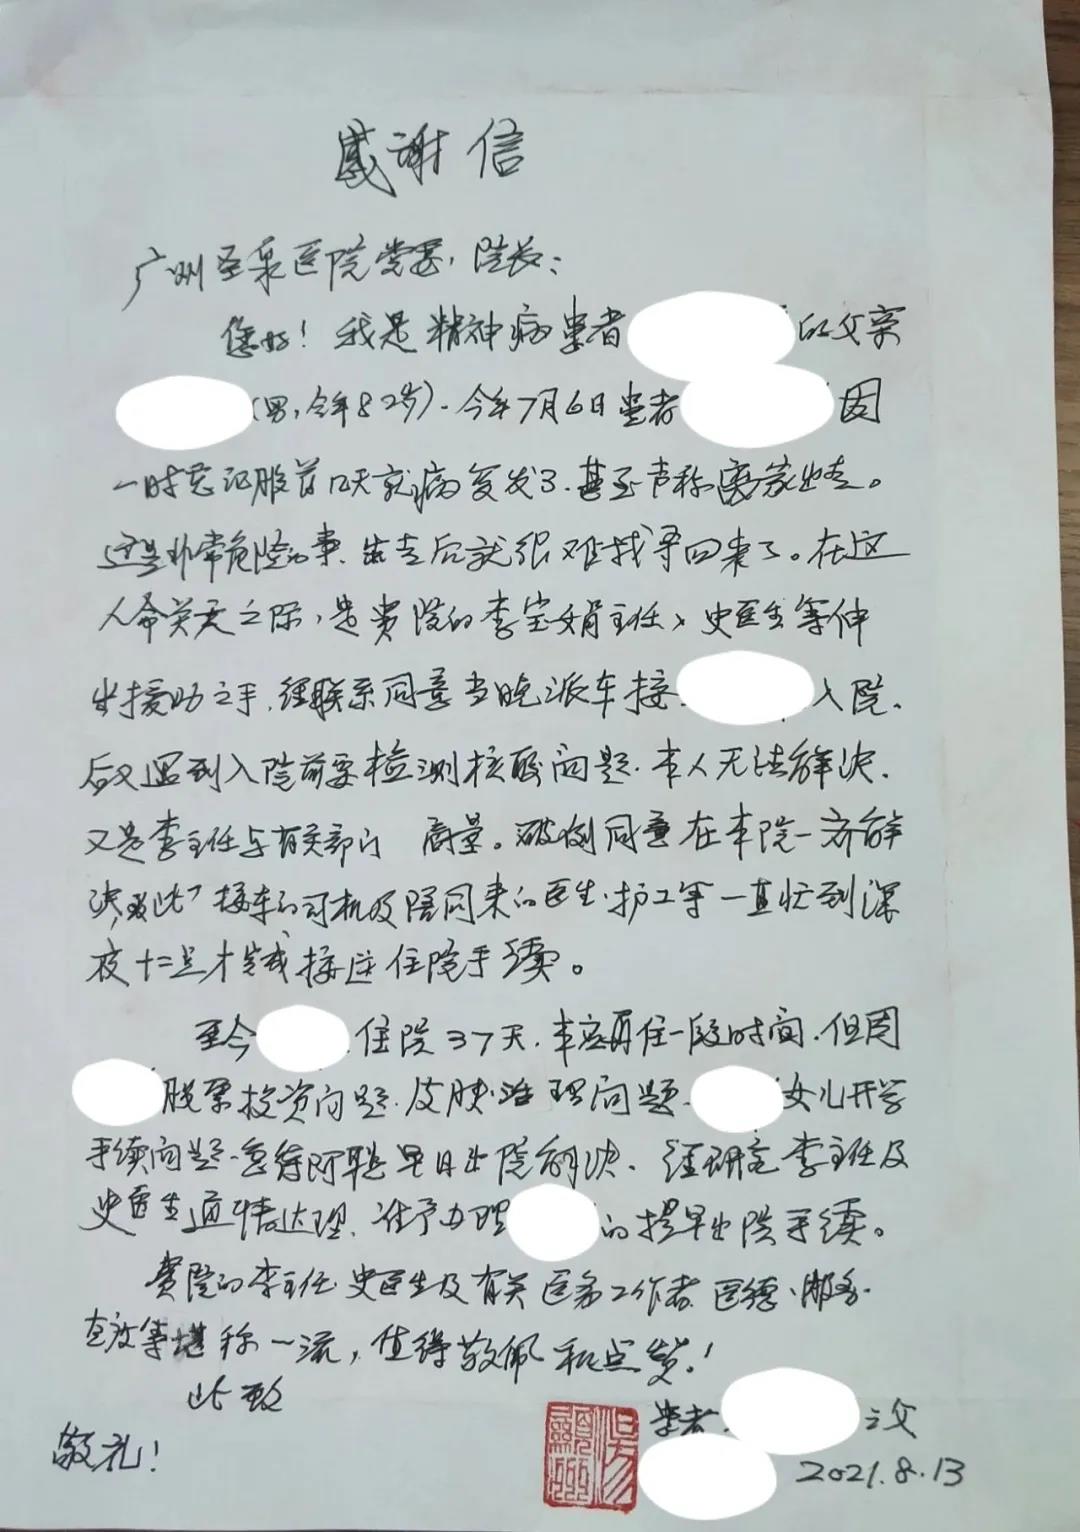 感谢信
广州圣泉医院党委，院长：
您好！我是精神病患者 的父亲
（男，今年82岁）．今年7月6日患者 因
一时忘记服药几天就病复发了．甚至声称离家出走。
这是非常危险的事．出走后就很难找寻回来了。在这
人命关天之际，是贵院的李宝娟主任、史医生等伸
出援助之手．经联系同意当晚派车接 入院．
后又遇到入院前要检测核酸问题．本人无法解决．
又是李主任与有关部门 商量。破例同意在本院一齐解
决．为此 接车的司机及陪同来的医生．护工等一直忙到深
夜十二点才完成接送住院手续。
至今 住院37天．本应再住一段时间．但因
股票投资问题．皮肤治理问题． 女儿开学
手续问题．急待 早日出院解决．经研究李主任及
史医生通情达理．准予办理 的提早出院手续。
贵院的李主任．史医生及有关医务工作者．医德．服务．
等堪称一流，值得敬佩和点赞！
此致
敬礼！
患者 之父
2021.8.13